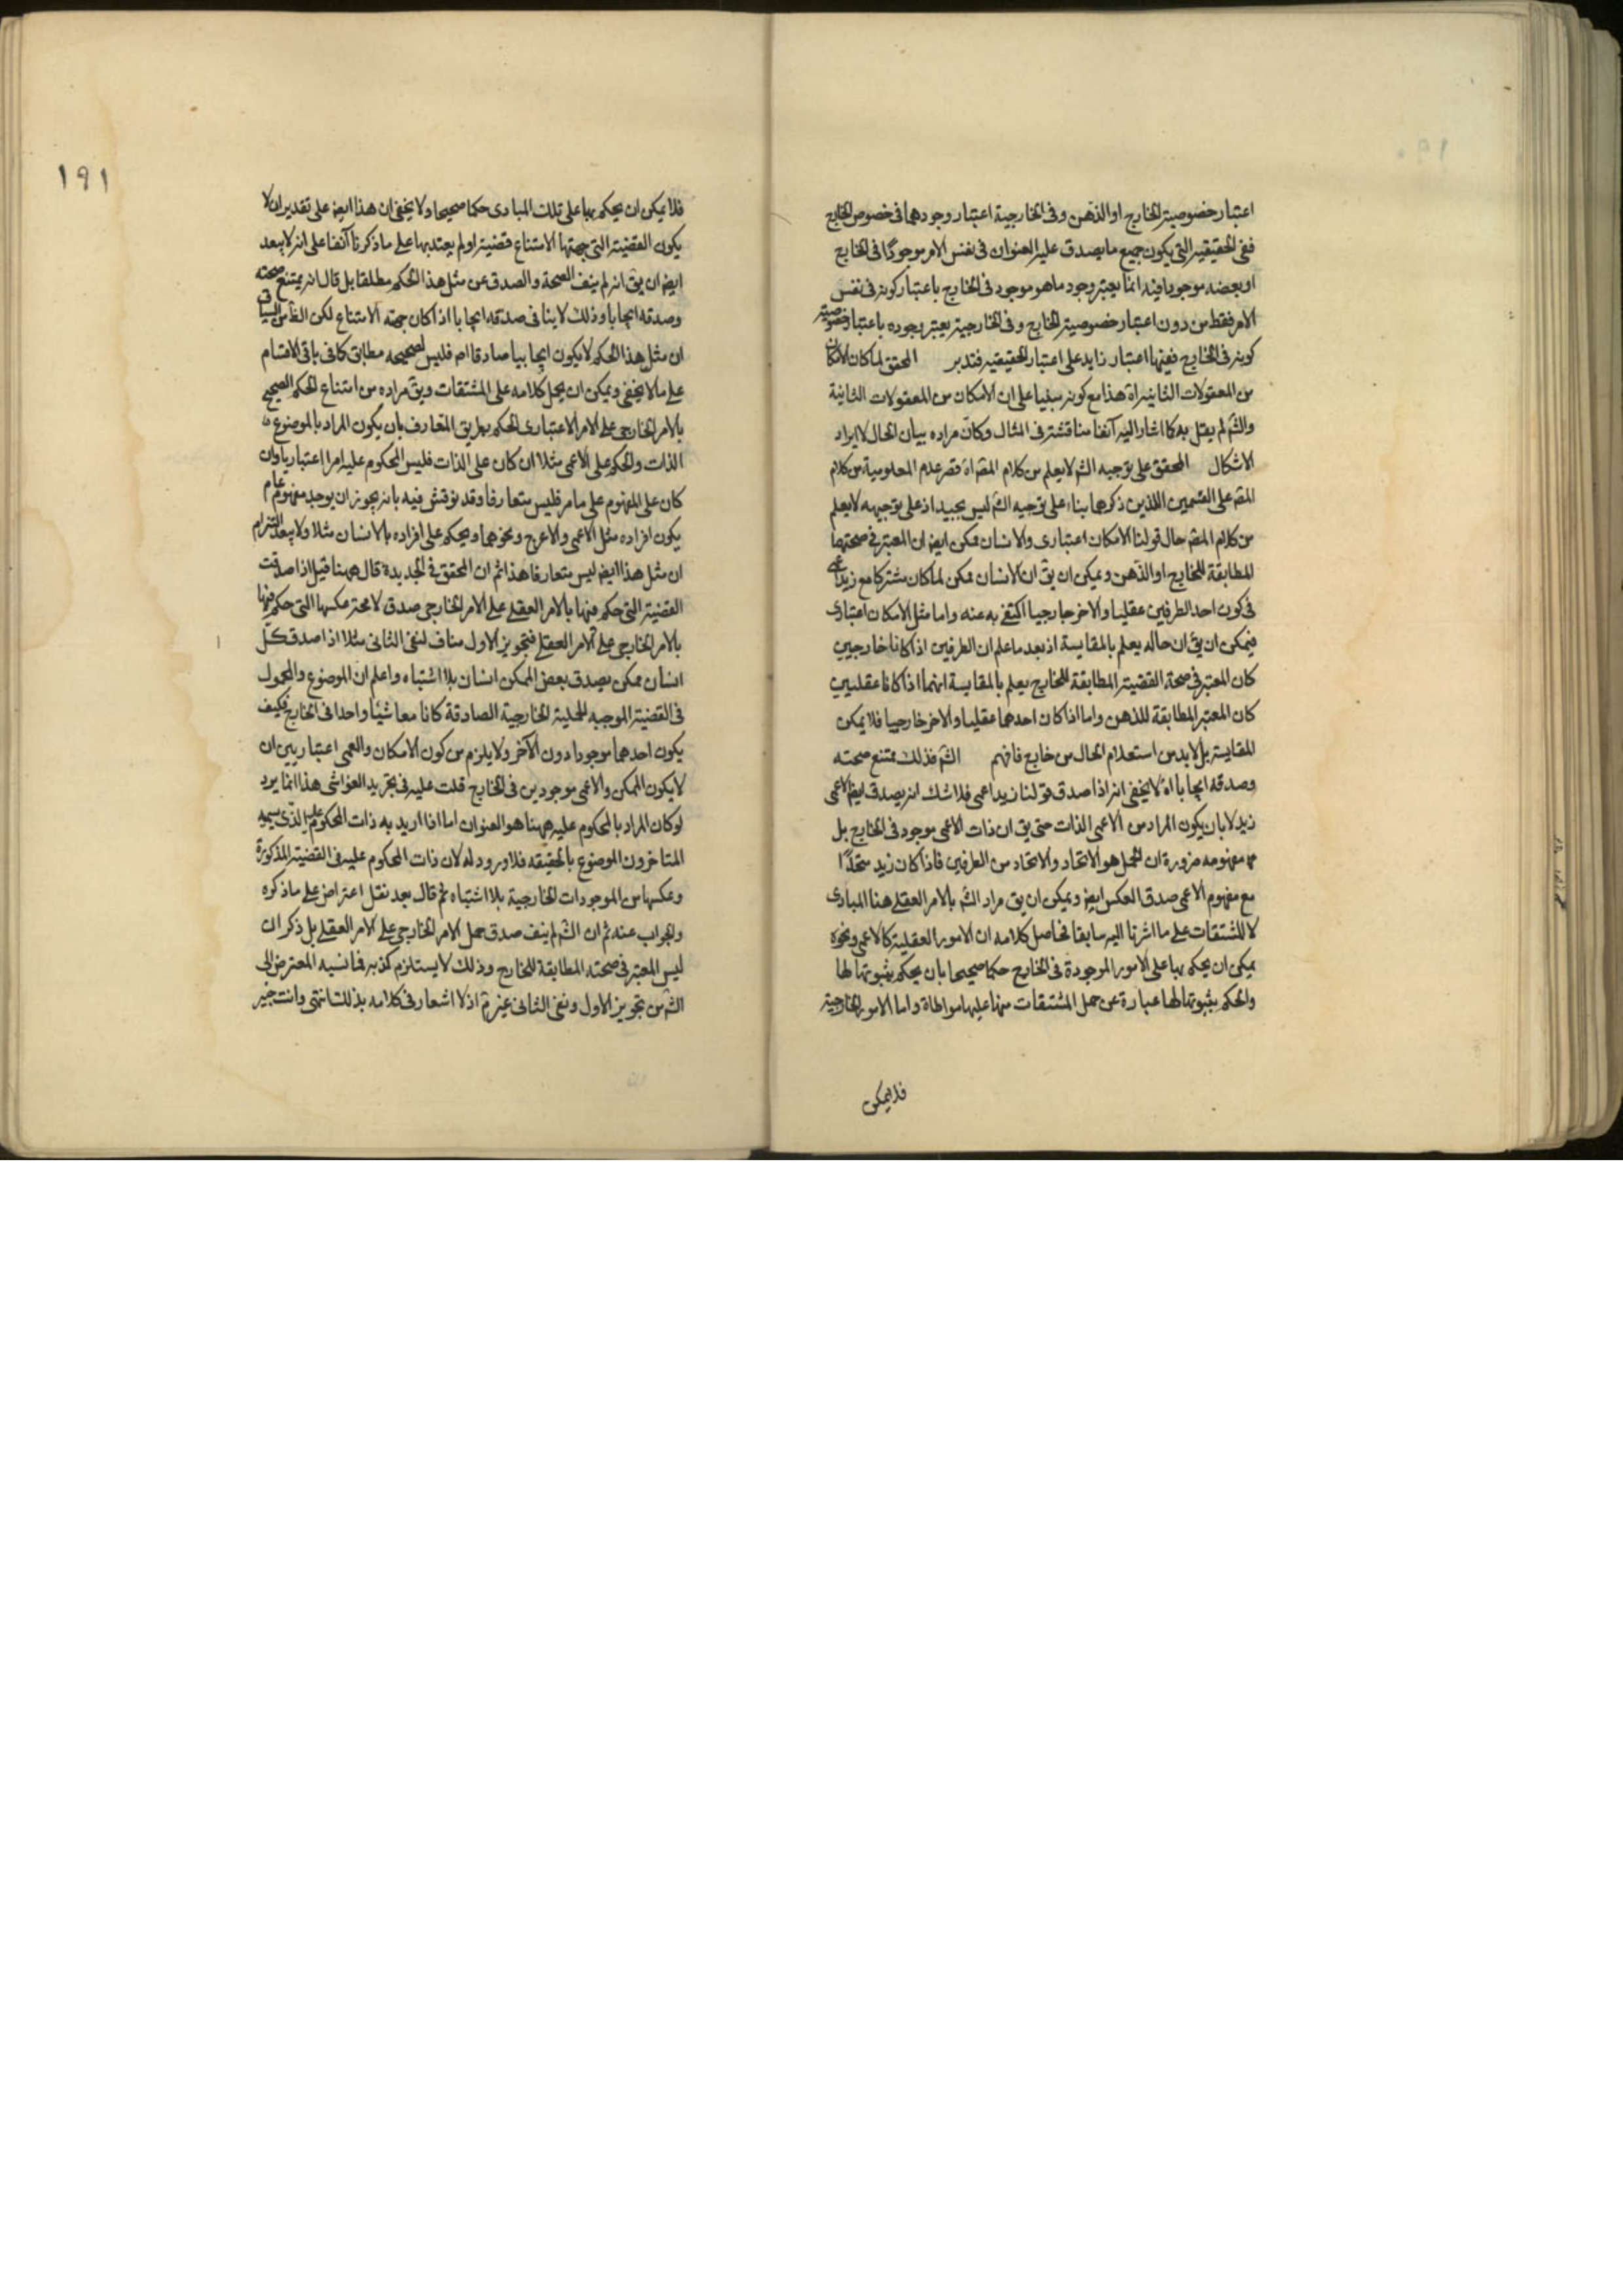 اعتبار خصوصية الخارج او الذهن وفى الخارجية اعتبار وجودهما فى خصوص الخارج
ففى الحقيقيه التى يكون جميع ما يصدق عليه العنوان فى نفس الامر موجودًا فى الخارج
او بعضه موجودا فيه انما يعتبر وجود ما هو موجود فى الخارج باعتبار كونه فى نفس
الامر فقط من دون اعتبار خصوصية الخارج وفى الخارجية يعتبر وجوده باعتبار خصوصية
كونه فى الخارج ففيها اعتبار زايد على اعتبار الحقيقيه فتدبر المحقق لما كان الامكان
من المعقولات الثانيه اه هذا مع كونه مبنيا على ان الامكان من المعقولات الثانية
والشم لم يقل به كما اشار اليه آنفا مناقشة فى المثال وكان مراده بيان الحال لا ايراد
الاشكال المحقق على توجيه الشم لا يعلم من كلام المصم اه قصر عدم المعلومية من كلام
المصم على القسمين اللذين ذكرهما بناء على توجيه الشم ليس بجيد اذ على توجيهه لا يعلم
من كلام المصم حال قولنا الامكان اعتبارى والانسان ممكن ايض ان المعتبر فى صحتهما
المطابقة للخارج او الذهن ويمكن ان يق ان الانسان ممكن لما كان مشتركا مع زيد اعمى
فى كون احد الطرفين عقليا والاخر خارجيا اكتفى به عنه واما مثل الامكان اعتبارى
فيمكن ان يق ان حاله يعلم بالمقايسة اذ بعد ما علم ان الطرفين اذا كانا خارجيين
كان المعتبر فى صحة القضية المطابقة للخارج يعلم بالمقايسة انهما اذا كانا عقليين
كان المعتبر المطابقة للذهن واما اذا كان احدهما عقليا والاخر خارجيا فلا يمكن
المقايسة بل لا بد من استعلام الحال من خارج فافهم الشم فذلك ممتنع صحته
وصدقه ايجابا اه لا يخفى انه اذا صدق قولنا زيد اعمى فلا شك انه يصدق ايض الاعمى
زيد لا بان يكون المراد من الاعمى الذات حتى يق ان ذات الاعمى موجود فى الخارج بل
مفهومه ضرورة ان الحمل هو الاتحاد والاتحاد من الطرفين فاذا كان زيد متحدًا
مع مفهوم الاعمى صدق العكس ايض ويمكن ان يق مراد الشم بالامر العقلى هنا المبادى
لا المشتقات على ما اشرنا اليه سابقا فحاصل كلامه ان الامور العقلية كالاعمى ونحوه
يمكن ان يحكم بها على الامور الموجودة فى الخارج حكما صحيحا بان يحكم بثبوتها لها
والحكم بثبوتها لها عبارة عن حمل المشتقات منها عليها مواطاة واما الامور الخارجية
فلا يمكن
١٩١
فلا يمكن ان يحكم بها على تلك المبادى حكما صحيحا ولا يخفى ان هذا ايض على تقدير ان لا
يكون القضية التى جهتها الامتناع قضية او لم يعتد بها على ما ذكرنا آنفا على انه لا يبعد
ايض ان يق انه لم ينف الصحة والصدق عن مثل هذا الحكم مطلقا بل قال انه يمتنع صحته
وصدقه ايجابا وذلك لا ينافى صدقه ايجابا اذا كان جهته الامتناع لكن الظاهر من السياق
ان مثل هذا الحكم لا يكون ايجابيا صادقا اصم فليس لصحيحه مطابق كما فى باقى الاقسام
على ما لا يخفى ويمكن ان يحمل كلامه على المشتقات ويق مراده من امتناع الحكم الصحيح
بالامر الخارجى على الامر الاعتبارى الحكم بطريق المتعارف بان يكون المراد بالموضوع
الذات والحكم على الاعمى مثلا ان كان على الذات فليس المحكوم عليه امرا اعتباريا وان
كان على المفهوم على ما مر فليس متعارفا وقد نوقش فيه بانه يجوز ان يوجد مفهوم عام
يكون افراده مثل الاعمى والاعرج ونحوهما ويحكم على افراده بالانسان مثلا ولا يبعد التزام
ان مثل هذا ايض ليس متعارفا هذا ثم ان المحقق فى الجديدة قال ههنا قيل اذا صدقت
القضية التى حكم فيها بالامر العقلى على الامر الخارجى صدق لا محة عكسها التى حكم فيها
بالامر الخارجى على الامر العقلى فتجويز الاول مناف لنفى الثانى مثلا اذا صدق كل
انسان ممكن يصدق بعض الممكن انسان بلا اشتباه واعلم ان الموضوع والمحمول
فى القضية الموجبه الحملية الخارجية الصادقة كانا معا شيئا واحدا فى الخارج فكيف
يكون احدهما موجودا دون الآخر ولا يلزم من كون الامكان والعمى اعتباريين ان
لا يكون الممكن والاعمى موجودين فى الخارج قلت عليه فى تجريد الغواشى هذا انما يرد
لو كان المراد بالمحكوم عليه ههنا هو العنوان اما اذا اريد به ذات المحكوم عليه الذى يسميه
المتاخرون الموضوع بالحقيقه فلا ورود له لان ذات المحكوم عليه فى القضية المذكورة
وعكسها من الموجودات الخارجية بلا اشتباه ثم قال بعد نقل اعتراض على ما ذكره
والجواب عنه ثم ان الشم لم ينف صدق حمل الامر الخارجى على الامر العقلى بل ذكر ان
ليس المعتبر فى صحته المطابقة للخارج وذلك لا يستلزم كذبه فما نسبه المعترض الى
الشم من تجويز الاول ونفى الثانى غير تم اذ لا اشعار فى كلامه بذلك انتهى وانت خبير